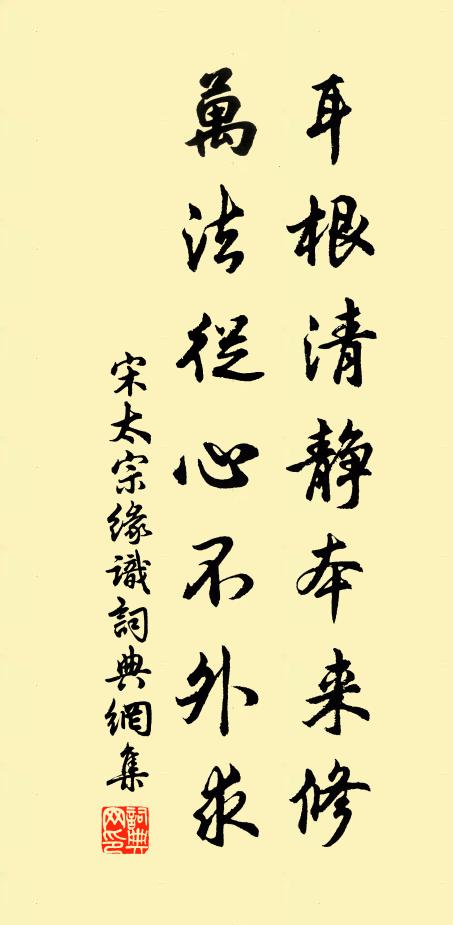 耳根清静本来修
萬法從心不外求
宋太宗緣識詞典網集
詞典网印